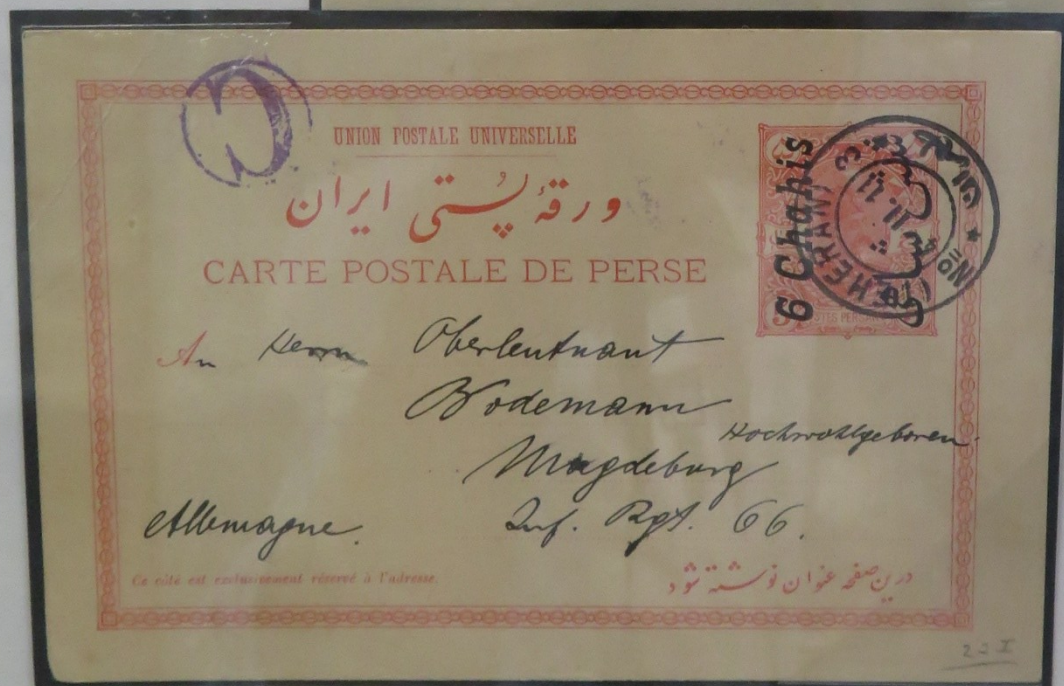 UNION POSTALE UNIVERSELLE
ورقهٔ پستی ایران
CARTE POSTALE DE PERSE
6 Chahis
TEHERAN
11
POSTES PERSANES
An Herrn Oberleutnant
Bodemann
Hochwohlgeboren
Magdeburg
Inf. Rgt. 66.
Allemagne.
Ce côté est exclusivement réservé à l'adresse.
درین صفحه عنوان نوشته شود
22 I